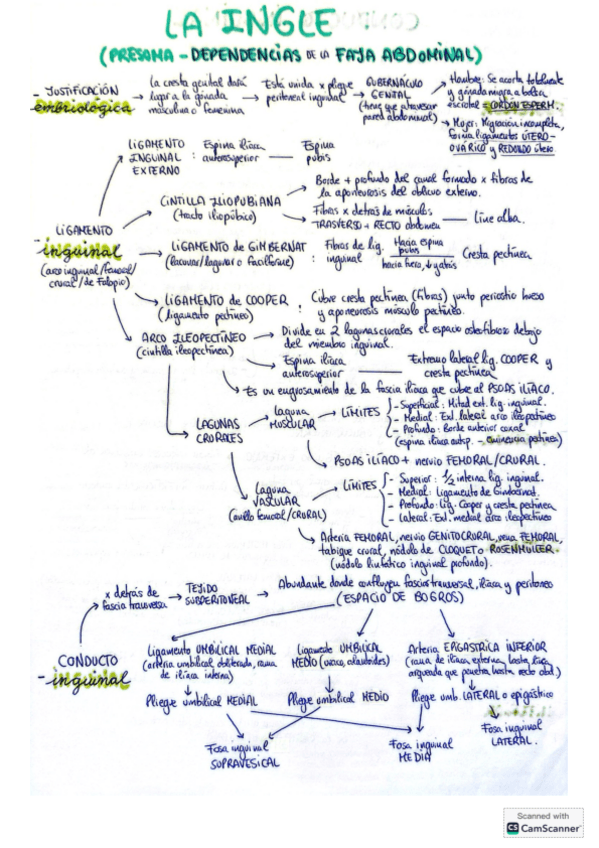 LA INGLE
(PRESOMA - DEPENDENCIAS DE LA FAJA ABDOMINAL)
- JUSTIFICACIÓN
embriológica
La cresta genital dará
lugar a la gónada
masculina o femenina
Está unida x pliegue
peritoneal inguinal
GUBERNÁCULO
GENITAL
(tiene que atravesar
pared abdominal)
Hombre: Se acorta totalmente
y gónada migra a bolsa
escrotal = CORDÓN ESPERM.
Mujer: Migración incompleta,
forma ligamentos ÚTERO-
OVÁRICO y REDONDO útero.
LIGAMENTO
- inguinal
(arco inguinal/femoral/
crural/de Falopio)
LIGAMENTO
INGUINAL :
EXTERNO
Espina ilíaca
anterosuperior
Espina
pubis
CINTILLA ILIOPUBIANA
(tracto iliopúbico)
Borde + profundo del canal formado x fibras de
la aponeurosis del oblicuo externo.
Fibras x detrás de músculos
TRASVERSO + RECTO abdomen
Línea alba.
LIGAMENTO de GIMBERNAT :
(lacunar/lagunar o falciforme)
Fibras de lig.
inguinal
Hacia espina
pubis
hacia fuera, ↓ y atrás
Cresta pectínea
LIGAMENTO de COOPER :
(ligamento pectíneo)
Cubre cresta pectínea (fibras) junto periostio hueso
y aponeurosis músculo pectíneo.
ARCO ILEOPECTÍNEO
(cintilla ileopectínea)
Divide en 2 lagunas crurales el espacio osteofibroso debajo
del miembro inguinal.
Espina ilíaca
anterosuperior
Extremo lateral lig. COOPER y
cresta pectínea
Es un engrosamiento de la fascia ilíaca que cubre al PSOAS ILÍACO.
LAGUNAS
CRURALES
Laguna
MUSCULAR
LÍMITES
- Superficial: Mitad ext. lig. inguinal.
- Medial: Ext. lateral arco ileopectíneo
- Profundo: Borde anterior coxal
(espina ilíaca antsp. - eminencia pectínea)
PSOAS ILÍACO + nervio FEMORAL/CRURAL.
Laguna
VASCULAR
(anillo femoral/CRURAL)
LÍMITES
- Superior: 1/2 interna lig. inguinal.
- Medial: Ligamento de Gimbernat.
- Profundo: Lig. Cooper y cresta pectínea
- Lateral: Ext. medial arco ileopectíneo
Arteria FEMORAL, nervio GENITOCRURAL, vena FEMORAL,
tabique crural, nódulo de CLOQUET o ROSENMÜLLER.
(nódulo linfático inguinal profundo).
CONDUCTO
- inguinal
x detrás de
fascia transversa
TEJIDO
SUBPERITONEAL
Abundante donde confluyen fascias transversal, ilíaca y peritoneo
(ESPACIO DE BOGROS)
Ligamento UMBILICAL MEDIAL
(arteria umbilical obliterada, rama
de ilíaca interna)
Ligamento UMBILICAL
MEDIO (uraco, alantoides)
Arteria EPIGÁSTRICA INFERIOR
(rama de ilíaca externa, hasta línea
arqueada que penetra hasta recto abd.)
Pliegue umbilical MEDIAL
Pliegue umbilical MEDIO
Pliegue umb. LATERAL o epigástrico
Fosa inguinal
SUPRAVESICAL
Fosa inguinal
MEDIA
Fosa inguinal
LATERAL.
Scanned with
CS CamScanner